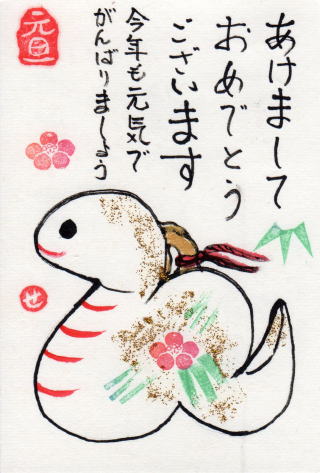 あけまして
おめでとう
ございます
今年も元気で
がんばりましょう
元旦
せ